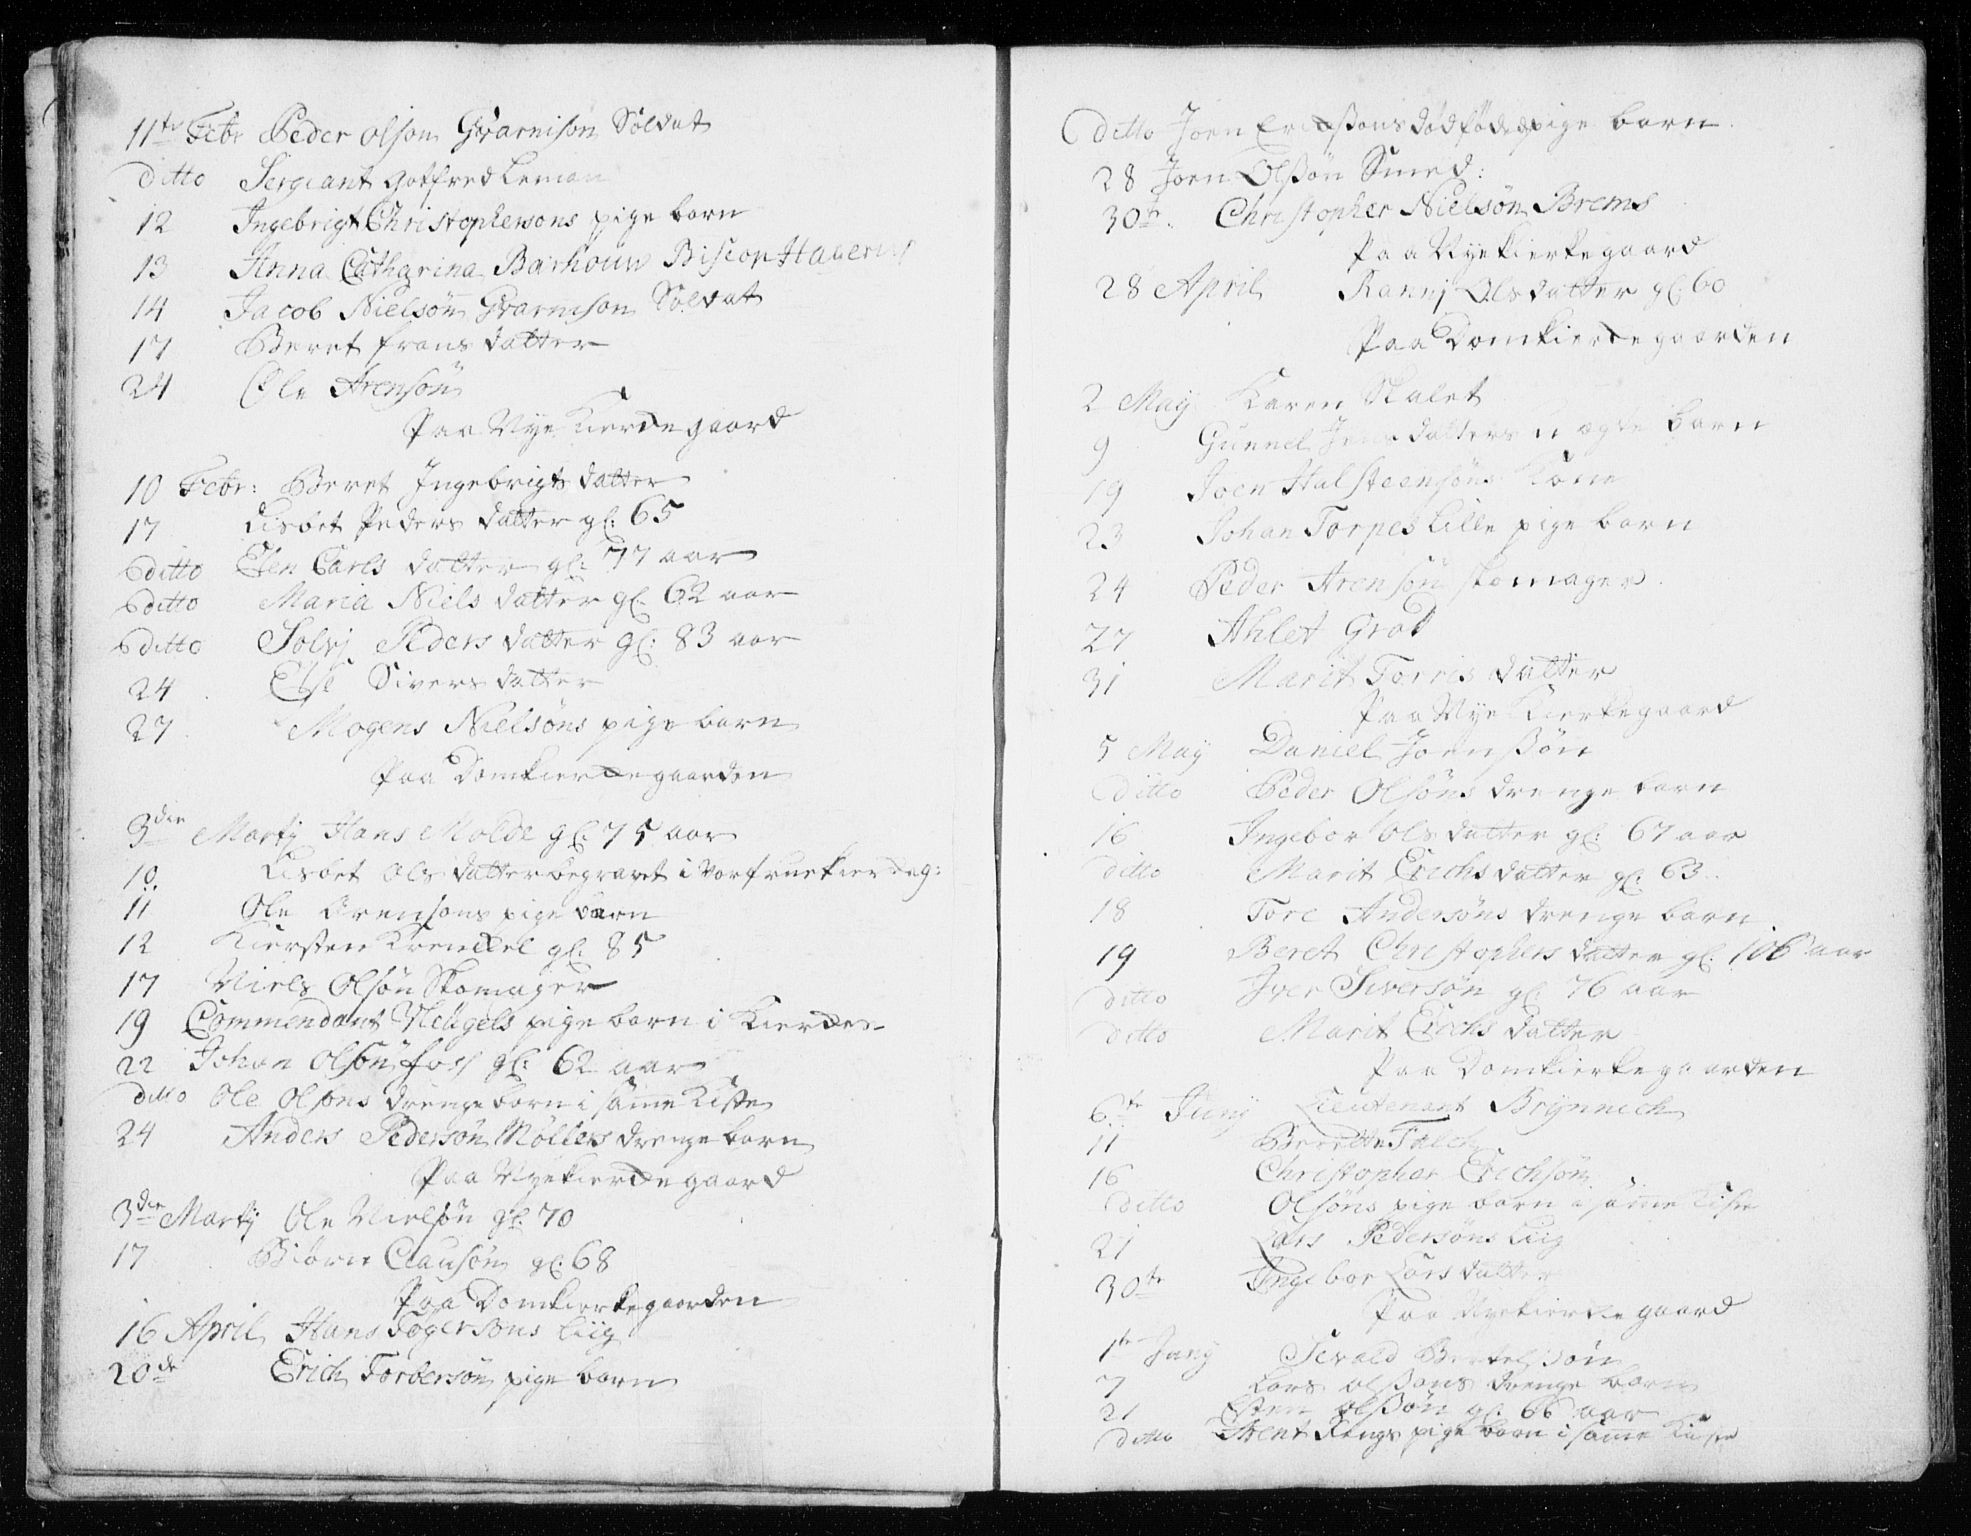 11te Febr Peder Olson Gvarnison Soldat
ditto Sergiant Gotfred Leman
12 Ingebrigt Christophersons pige barn
13 Anna Catharina Barhouw Biscop Hagerus
14 Jacob Nielsön Gvarnison Soldat
17 Beret frans datter
24 Ole Arensön
Paa Nye Kierckegaard
10 Febr: Beret Ingebrigts datter
17 Lisbet Peders datter gl: 65
ditto Elen Carls datter gl: 77 aar
ditto Maria Niels datter gl. 62 aar
ditto Solvj Peders datter gl: 83 aar
24 Else Sivers datter
27 Mogens Nielsöns pige barn
Paa Domkierckegaarden
3den Martj Hans Molde gl: 75 aar
10 Lisbet Ols datter begravet i Vorfruekierckeg:
11 Ole Arensons pige barn
12 Kiersten Krenckel gl: 85
17 Niels Olsön Skomager
19 Commendant Neügels pige barn i Kiercken
22 Johan Olsön foss gl: 62 aar
ditto Ole Olsons drenge barn i same Kiste
24 Anders Pedersön Möllers drenge barn
Paa Nyekierckegaard
3den Martj Ole Nielsön gl: 70
17 Biörn Clausön gl: 68
Paa Domkierkegaarden
16 April Hans Togersons liig
20de Erich Torbersön pige barn
ditto Joen Ericksons dödfödde pige barn
28 Joen Olssön Smed:
30te Christopher Nielsön Brems
Paa Nyekierkegaard
28 April Rannj Olsdatter gl: 60
Paa Domkierckegaarden
2 Maij Karen Skalet
9 Gunnel Jens datters u ægte barn
19 Joen Halsteensöns Kone
23 Johan Torpes lille pige barn
24 Peder Arensön skomager
27 Ahlet Grot
31 Marit Torris datter
Paa Nye Kierkegaard
5 Maij Daniel Joenssön
ditto Peder Olsöns drenge barn
16 Ingebor Ols datter gl: 67 aar
ditto Marit Erichs datter gl: 63
18 Tore Andersöns drenge barn
19 Beret Christophers datter gl: 106 aar
ditto Iver Siversön gl: 76 aar
ditto Marit Erichs datter
Paa Domkierkegaarden
6te Junij Lieutenant Brÿnnich
11 Berette Falch
16 Christopher Erichsön
ditto Olsöns pige barn i same Kiste
21 Lars Pedersöns liig
30te Ingebor Lars datter
Paa Nyekierckegaard
1te Junij Sevald Bertelssön
7 Lars Olssöns drenge barn
21 Sten Olssön gl: 66 aar
ditto Arent Rengs pige barn i same Kiste